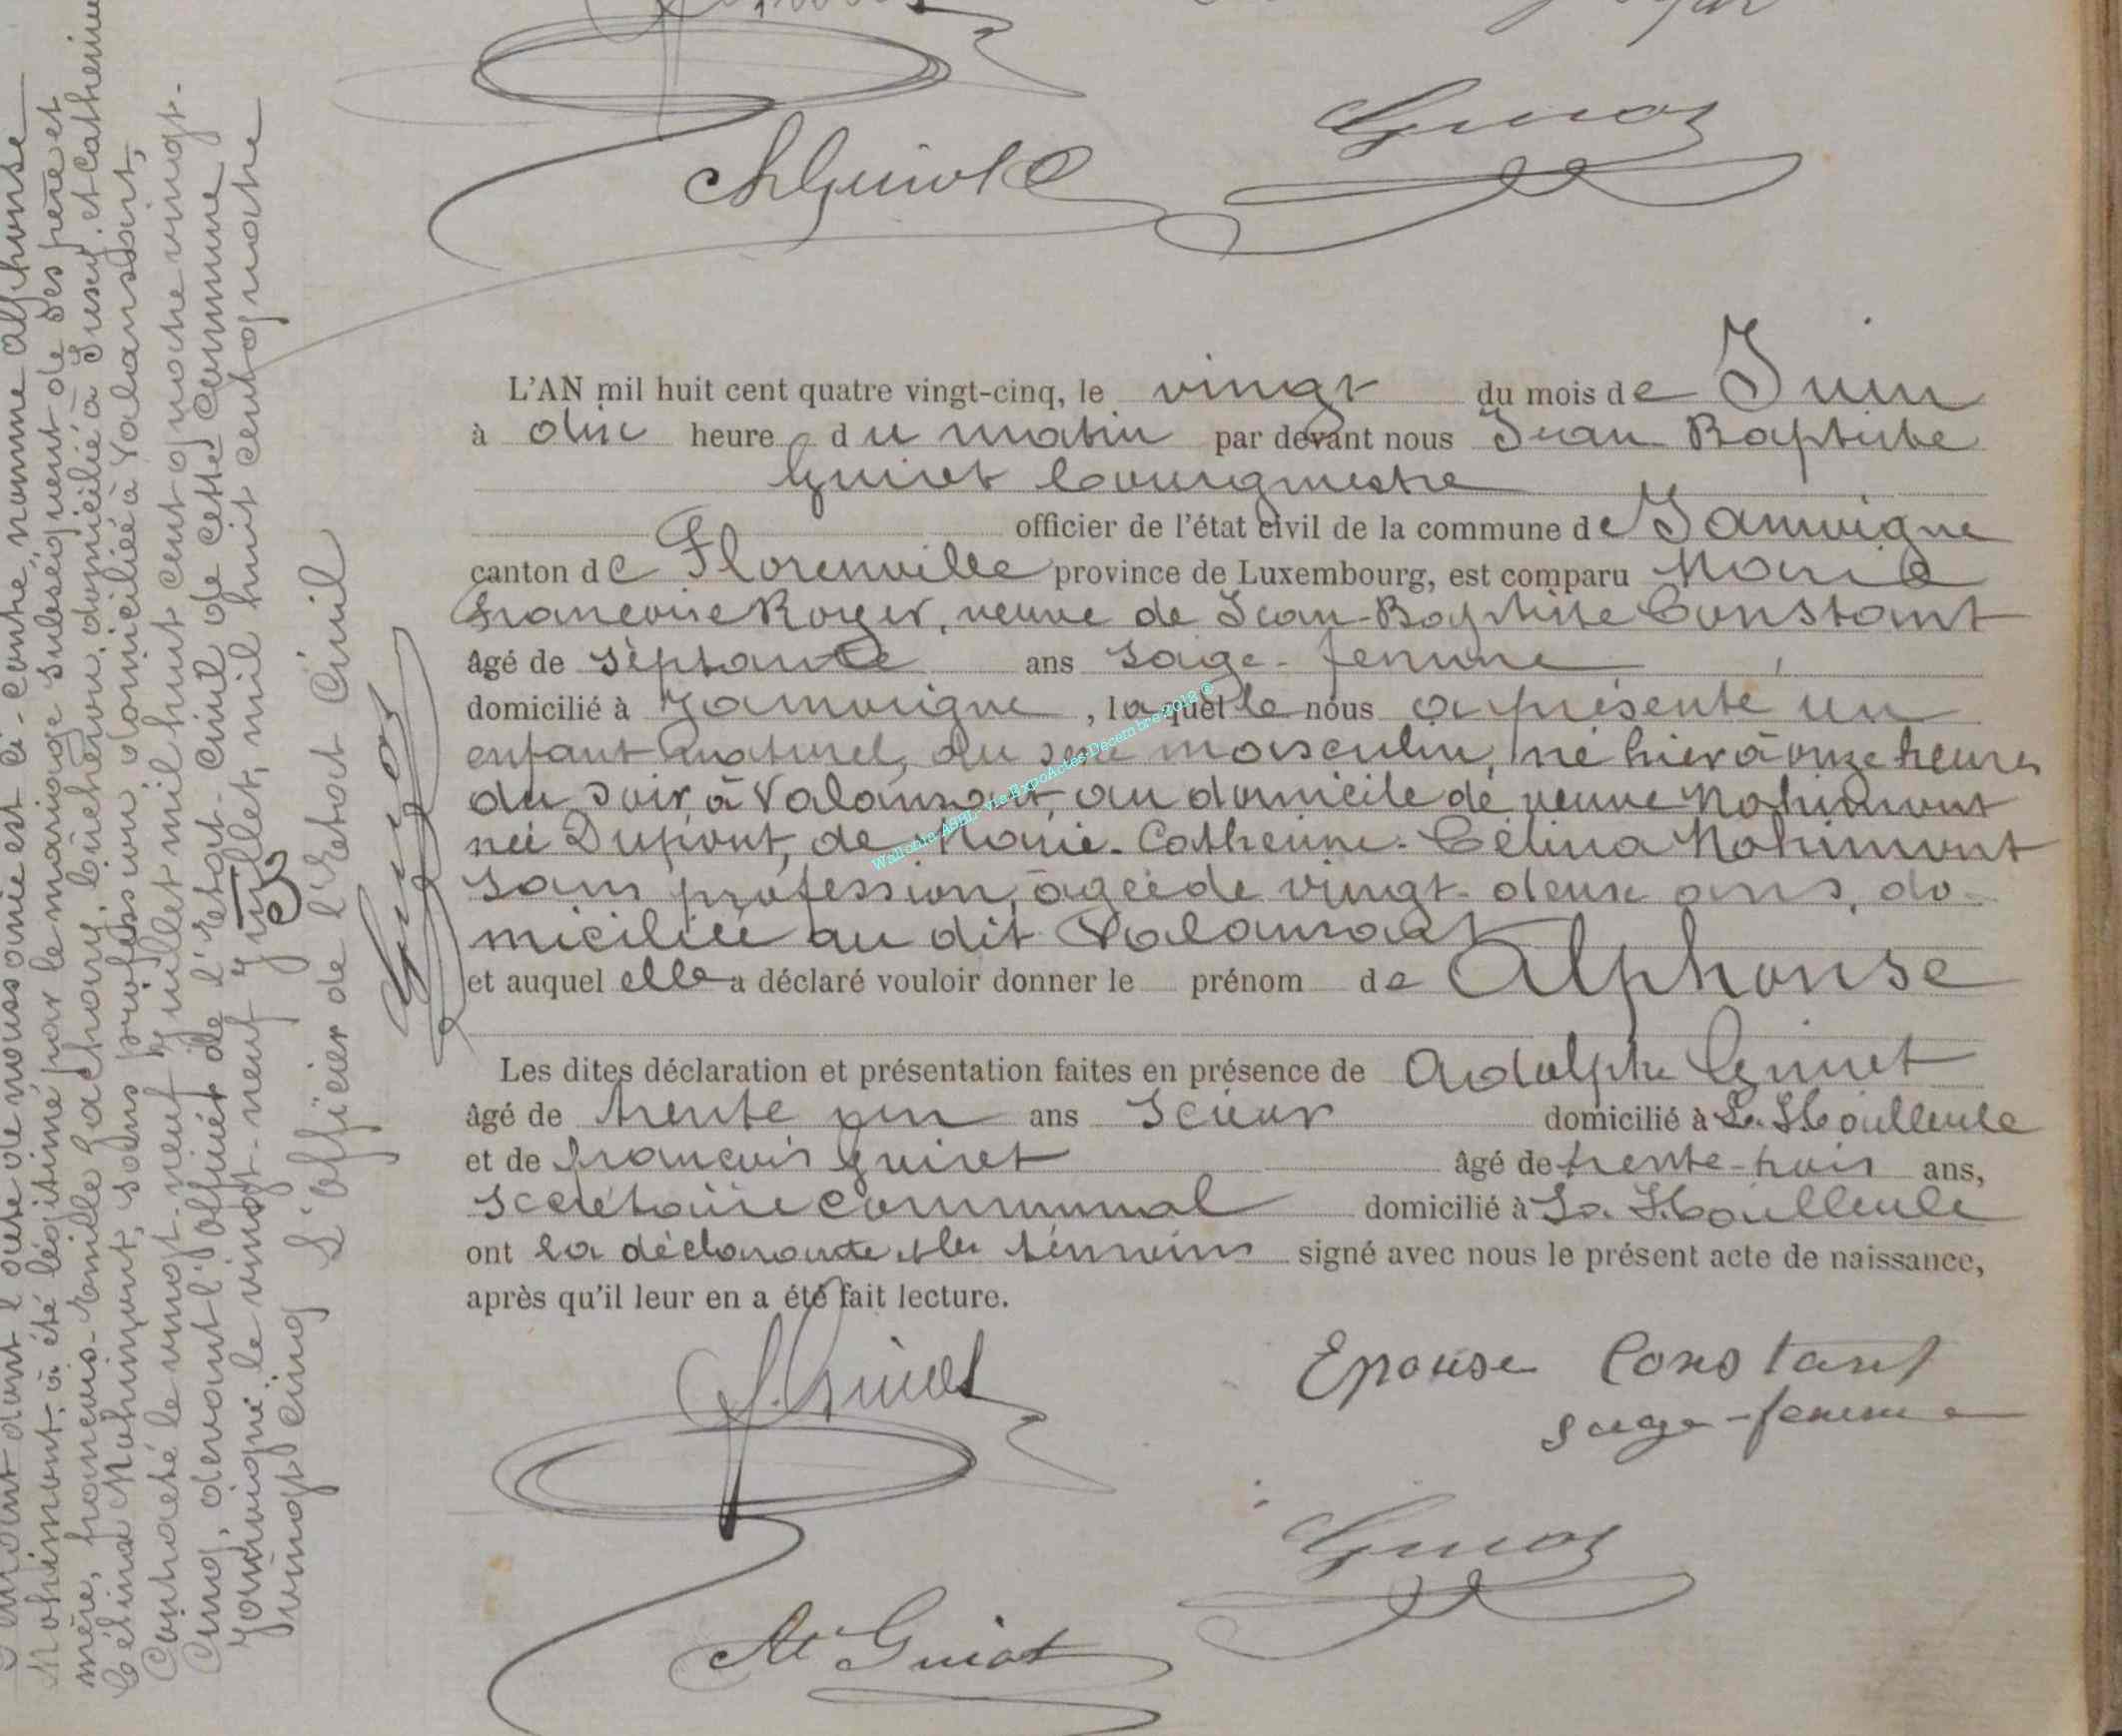 L'AN mil huit cent quatre vingt-cinq, le vingt du mois de Juin
à dix heures du matin par devant nous Jean Baptiste
Guiot bourgmestre
officier de l'état civil de la commune de Jamoigne
canton de Florenville province de Luxembourg, est comparu Marie
françoise Royer, veuve de Jean-Baptiste Constant
âgé de septante ans sage-femme
domicilié à Jamoigne, laquelle nous a présenté un
enfant naturel, du sexe masculin, né hier à onze heures
du soir à Valansart, au domicile de veuve Nohimont
née Dupont, de Marie-Catherine-Célina Nohimont
sans profession, âgée de vingt-deux ans, do-
miciliée au dit Valansart
et auquel elle a déclaré vouloir donner le prénom de Alphonse
Les dites déclaration et présentation faites en présence de Adolphe Guiot
âgé de trente un ans scieur domicilié à
et de françois Guiot âgé de trente-trois ans,
secrétaire communal domicilié à
ont la déclarante et les témoins signé avec nous le présent acte de naissance,
après qu'il leur en a été fait lecture.
Epouse Constant
sage-femme
Guiot
Ad Guiot
L'enfant dont l'acte de naissance est ci-contre, nommé Alphonse
Nohimont, a été légitimé par le mariage subséquent de ses père et
mère, françois-Emille Gachony, domicilié à et Catherine
Célina Nohimont, sans profession, domiciliée à Valansart,
Contracté le vingt-neuf Juillet mil huit cent quatre vingt-
Cinq, devant l'officier de l'Etat-Civil de cette Commune
Jamoigne le vingt-neuf Juillet, mil huit cent quatre
vingt cinq
L'officier de l'Etat Civil
Wallonia ASBL - via ExpoActes Décembre 2012 ©